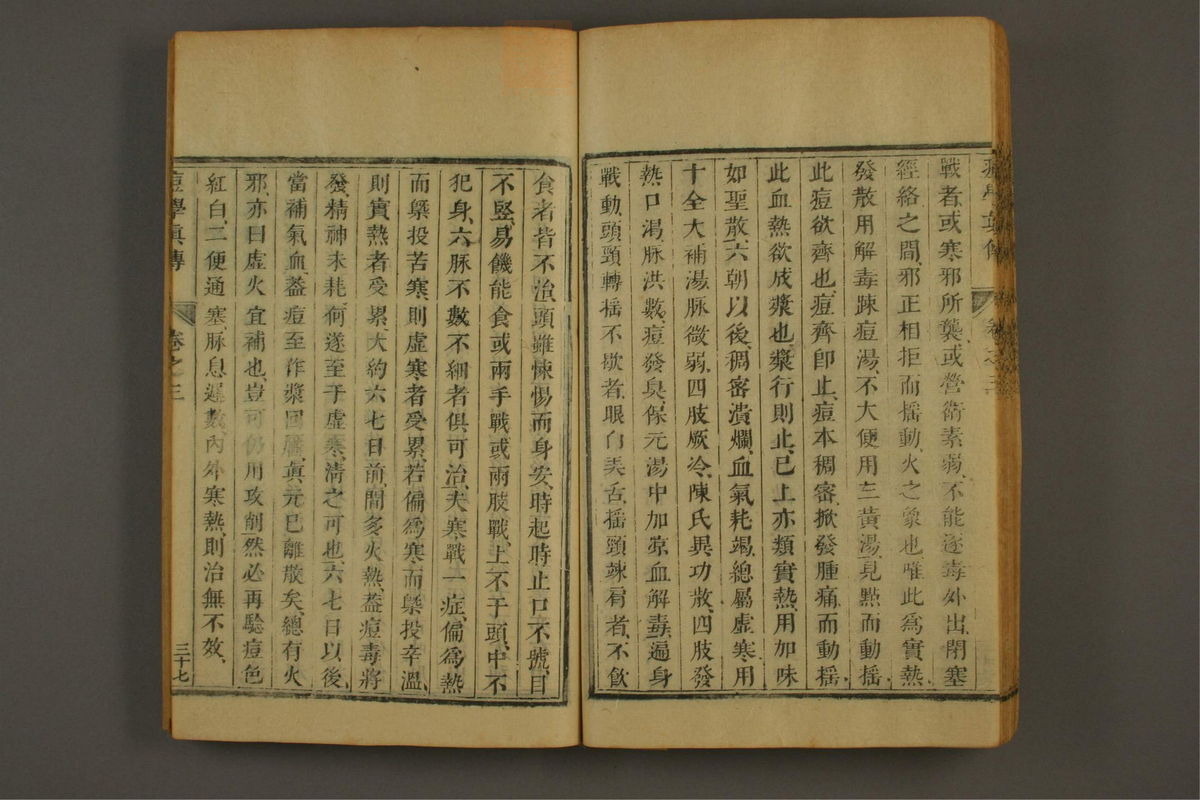 戰者、或寒邪所襲、或營衛素弱、不能逐毒外出、閉塞
經絡之間、邪正相拒而揺動、火之象也、唯此為實熱
發散用解毒踈痘湯、不大便用三黄湯、見㸃而動揺、
此痘欲齊也、痘齊即止、痘本稠密、掀發腫痛而動揺、
此血熱欲成漿也、漿行則止、已上亦類實熱、用加味
如聖散、六朝以後、稠密潰爛、血氣耗竭、總屬虛寒、用
十全大補湯、脉微弱、四肢厥冷、陳氏異功散、四肢發
熱口渴、脉洪數、痘發臭、保元湯中加凉血解毒、遍身
戰動、頭頸轉揺、不欲者、眼白弄舌、揺頭竦肩者、不飲
食者、皆不治、頭雖悚惕而身安、時起時止、口不號、目
不竪、易饑能食、或兩手戰、或兩肢戰、上不于頭、中不
犯身、六脉不數不細者、俱可治、夫寒戰一症、偏為熱
而槩投苦寒、則虛寒者受累、若偏為寒而槩投辛溫、
則實熱者受累、大約六七日前、間多火熱、葢痘毒將
發、精神未耗、何遂至于虛寒、清之可也、六七日以後、
當補氣血、葢痘至作漿囘靨、真元已離散矣、總有火
邪、亦曰虛火、宜補也、豈可仍用攻削、然必再騐痘色
紅白、二便通塞、脉息遲數、內外寒熱、則治無不效、
痘學眞傳
卷之三
三十七